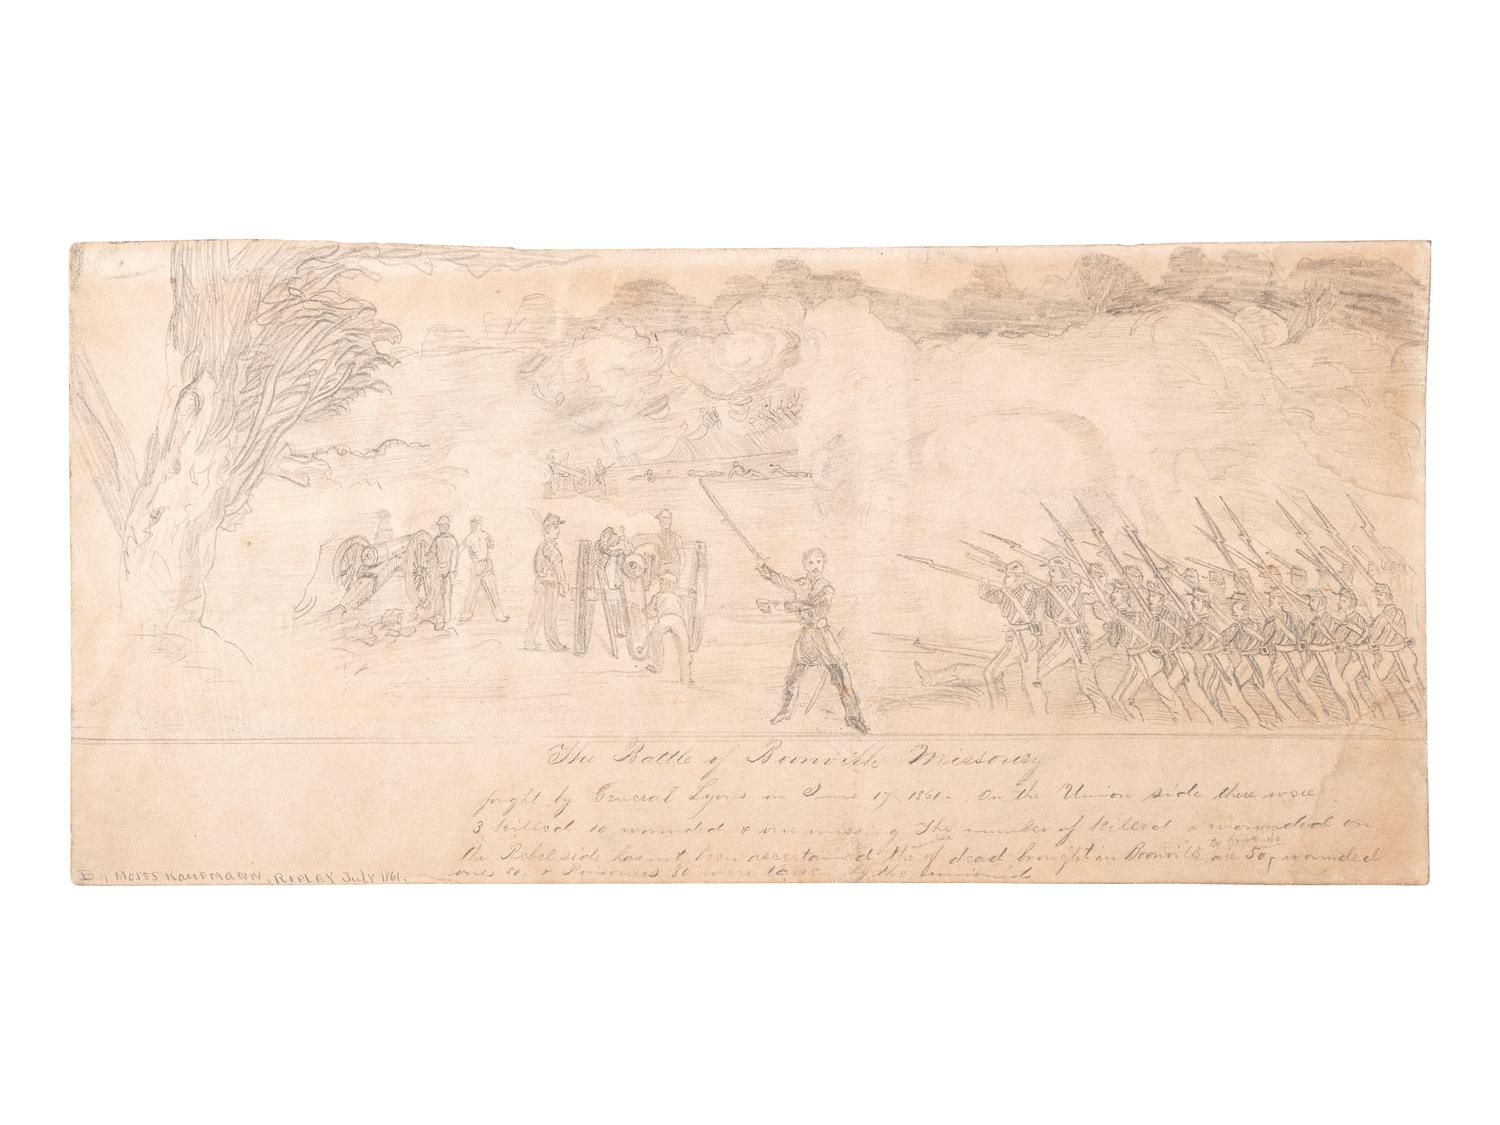 The Battle of Boonville Missoury
fought by General Lyons on June 17 1861- On the Union side there were
3 killed 10 wounded & one missing The number of killed & wounded on
the Rebel side has not been ascertained the of dead brought in Boonville by friends are 50, wounded
ones 50. & Prisoners 80 were taken by the unionists
By MOSES KAUFMANN, RIPLEY July 1861.